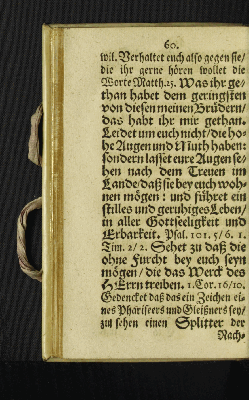 60.
wil. Verhaltet euch also gegen sie/
die ihr gerne hören wollet die
Worte Matth. 25. Was ihr ge-
than habet dem geringsten
von diesen meinen Brüdern/
das habt ihr mir gethan.
Leidet um euch nicht/ die ho-
he Augen und Muth haben:
sondern lasset eure Augen se-
hen nach dem Treuen im
Lande/ daß sie bey euch woh-
nen mögen: und führet ein
stilles und geruhiges Leben/
in aller Gottseeligkeit und
Erbarkeit. Psal. 101. 5/6. 1.
Tim. 2/2. Sehet zu daß die
ohne Furcht bey euch seyn
mögen/ die das Werck des
HErrn treiben. 1. Cor. 16/10.
Gedencket daß das ein Zeichen ei-
nes Phariseers und Gleißners sey/
zu sehen einen Splitter der
Nach-